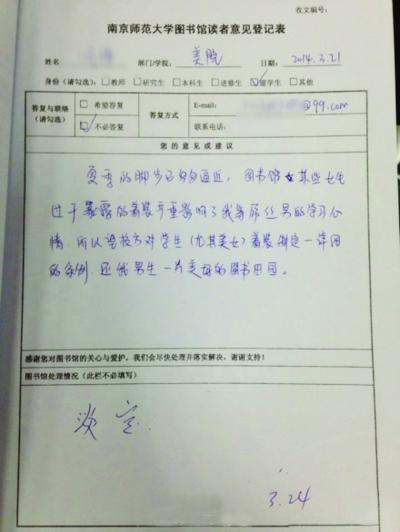 收文编号：
南京师范大学图书馆读者意见登记表
姓名 部门/学院： 美院 日期： 2014.3.21
身份（请勾选） □教师 □研究生 □本科生 □进修生 ☑留学生 □其他
答复与联络（请勾选） □ 希望答复 ☑ 不必答复 答复方式 E-mail: @99.com 联系电话：
您 的 意 见 或 建 议
夏季的脚步已匆匆逼近，图书馆某些女生
过于暴露的着装严重影响了我等屌丝男的学习心
情，所以望校方对学生（尤其美女）着装制定一详细
的条例，还我男生一片美好的图书田园。
感谢您对图书馆的关心与爱护，我们会尽快处理并落实解决，谢谢支持！
图书馆处理情况（此栏不必填写）
淡定.
3.24